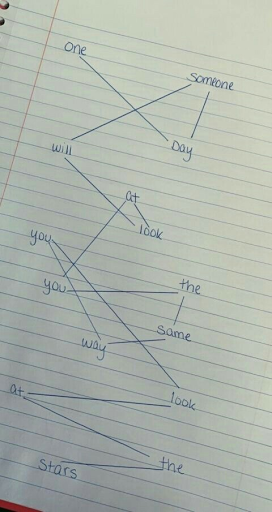 one
someone
Day
will
at
look
you
you
the
same
way
look
at
the
Stars